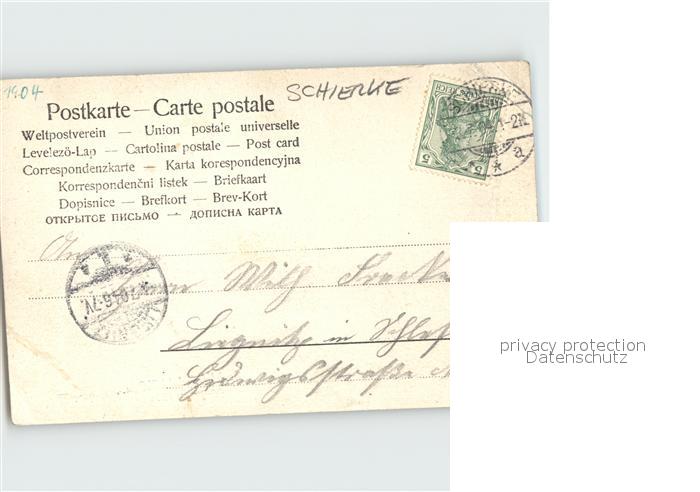 1904
SCHIERKE
Postkarte — Carte postale
Weltpostverein — Union postale universelle
Levelező-Lap — Cartolina postale — Post card
Correspondenzkarte — Karta korespondencyjna
Korrespondenční listek — Briefkaart
Dopisnice — Brefkort — Brev-Kort
ОТКРЫТОЕ ПИСЬМО — ДОПИСНА КАРТА
5 5
An
Wilh
Liegnitz in Schles
Hedwigsstraße
privacy protection
Datenschutz